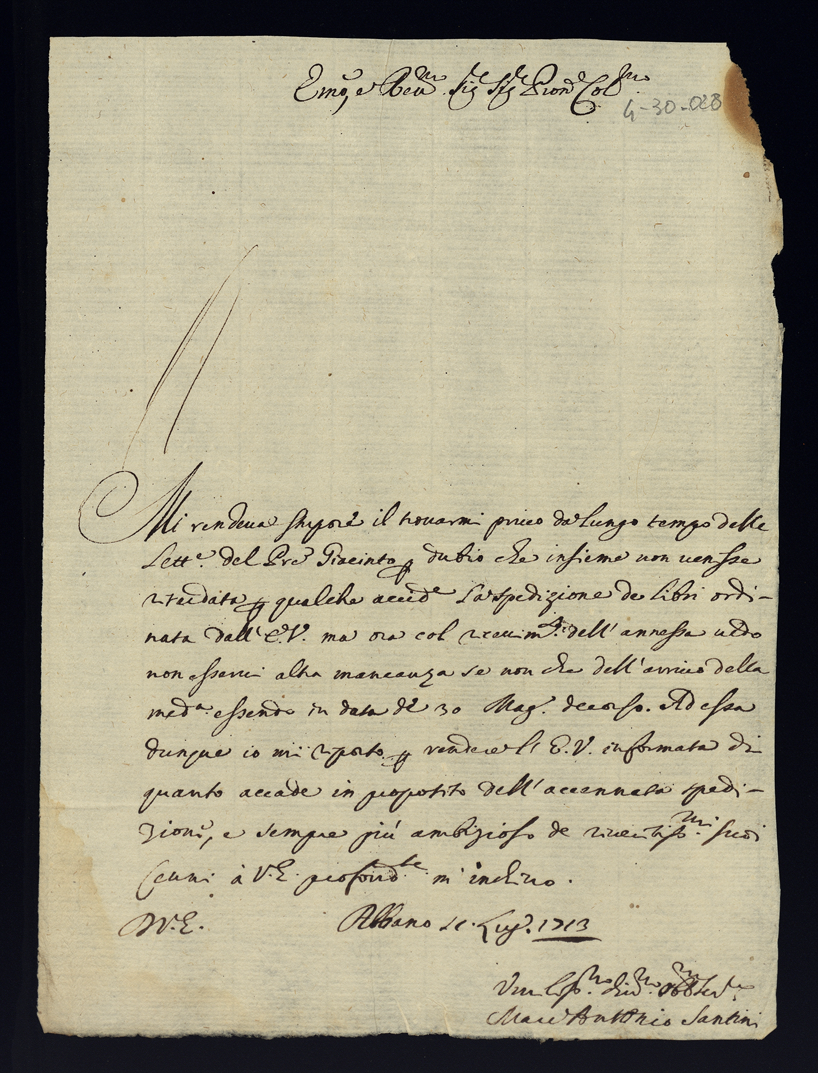 Emo, e Reu.mo Sig.r Sig.r Pron. Col.mo
4-30-028
Mi rendeua stupore il trouarmi priuo da lungo tempo delle
Lett.e del Pre Giacinto p dubio che insieme non uenisse
ritardata p qualche accid.e la spedizione de libri ordi-
nata dall' E.V. ma ora col riceuim.to dell' annessa uedo
non esserui altra mancanza se non che dell' arriuo della
med.a essendo in data de 30 Mag.o decorso. Ad essa
dunque io mi riporto p rendere l' E.V. informata di
quanto accade in proposito dell' accennata spedi-
zione, e sempre più ambizioso de riueritiss.mi suoi
Cenni à V.E. profond.te m' inchino.
D V.E. Albano Lug.o 1713
Vmiliss.mo diu.mo obb. Ser.re
Marc' Antonio Santini